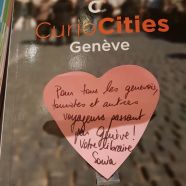 CurioCities
Genève
Pour tous les genevois,
touristes et autres
voyageurs passant
par Genève !
Votre libraire
Sonia